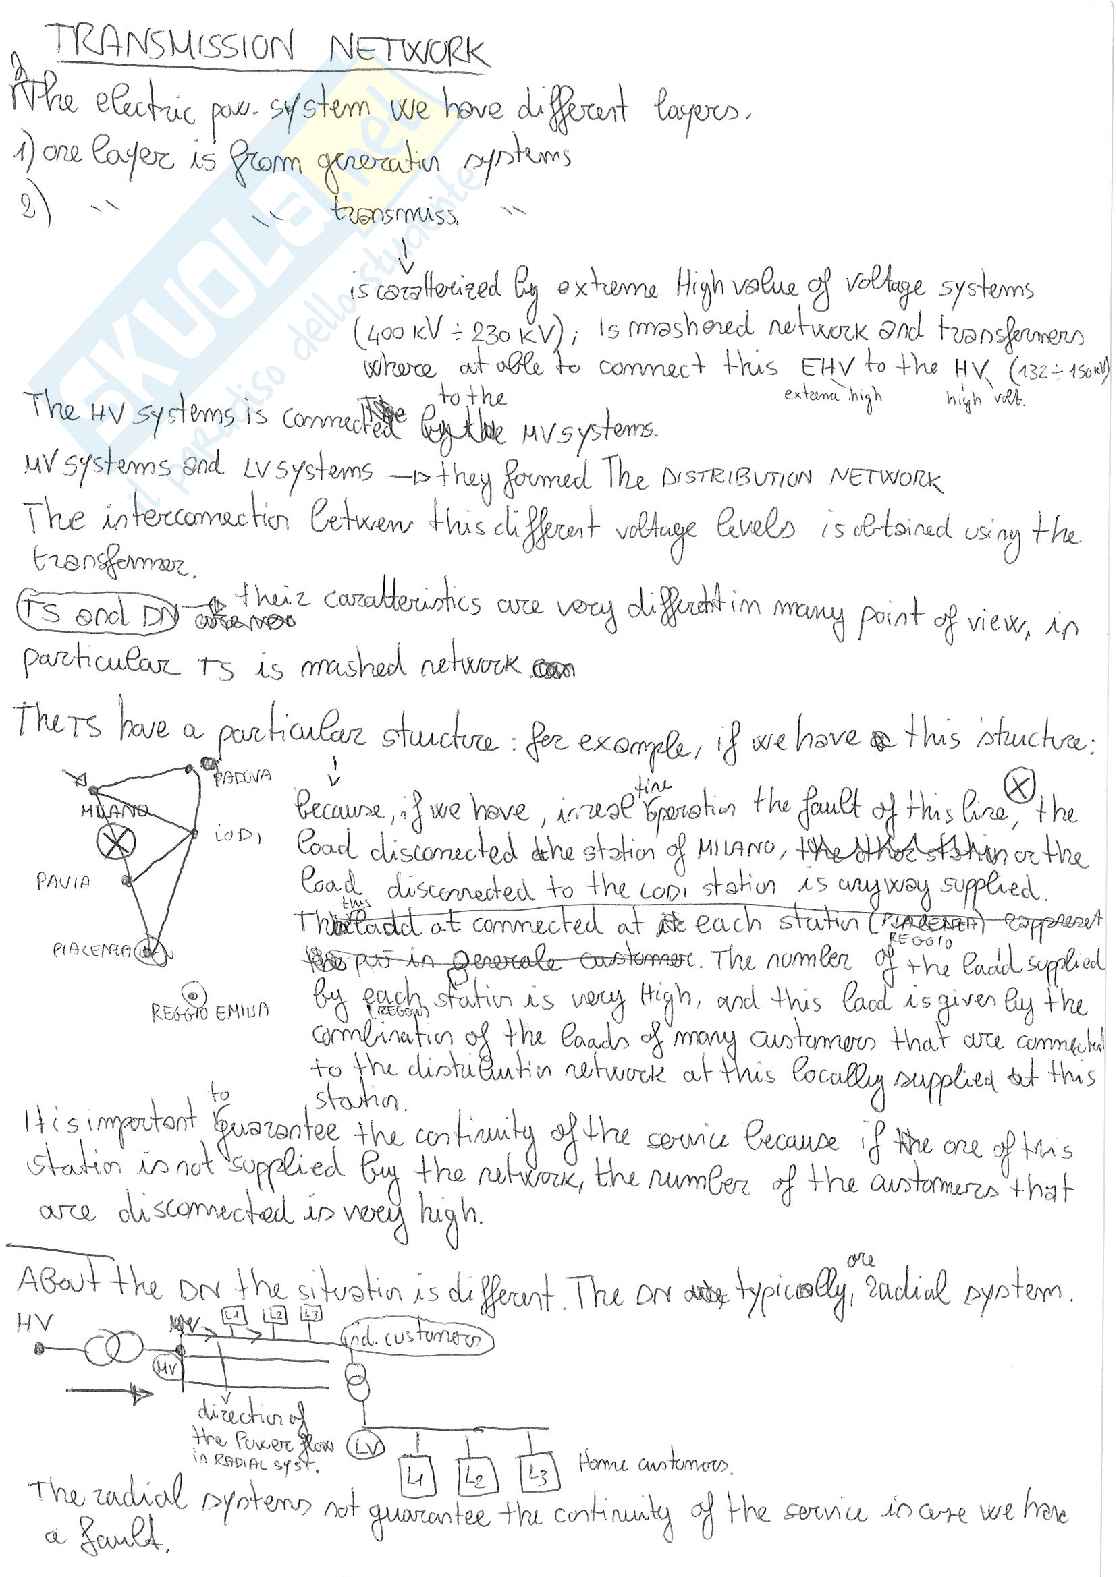 TRANSMISSION NETWORK
The electric pow. system we have different layers.
1) one layer is from generation systems
2) " " transmiss. "
is caratterized by extreme High value of voltage systems
(400 KV ÷ 230 KV); is mashered network and transformers
where at able to connect this EHV to the HV (132 ÷ 150 KV)
extreme high high volt.
to the
The HV systems is connected MV systems.
MV systems and LV systems → they formed The DISTRIBUTION NETWORK
The interconnection between this different voltage levels is obtained using the
transformer.
TS and DN → their caratteristics are very different in many point of view, in
particular TS is mashed network
The TS have a particular structure: for example, if we have this structure:
PADOVA
MILANO
LODI
PAVIA
PIACENZA
REGGIO EMILIA
time
because, if we have, in real operation the fault of this line, the
load disconnected the station of MILANO, or the
load disconnected to the LODI station is anyway supplied.
this
The load at connected at each station (PIACENZA) rappresent
REGGIO
the put in generale customer. The number of the load supplied
by each station is very High, and this load is given by the
(REGGIO)
combination of the loads of many customers that are connected
to the distribution network at this locally supplied at this
station.
to
It is important guarantee the continuity of the service because if the one of this
station is not supplied by the network, the number of the customers that
are disconnected is very high.
are
About the DN the situation is different. The DN typically, radial system.
HV
MV
L1 L2 L3
ind. customers
MV
direction of
the Power flow
in RADIAL SYST.
LV
L1 L2 L3
Home customers.
The radial systems not guarantee the continuity of the service in case we have
a fault.
SKUOLA.net
il paradiso dello studente